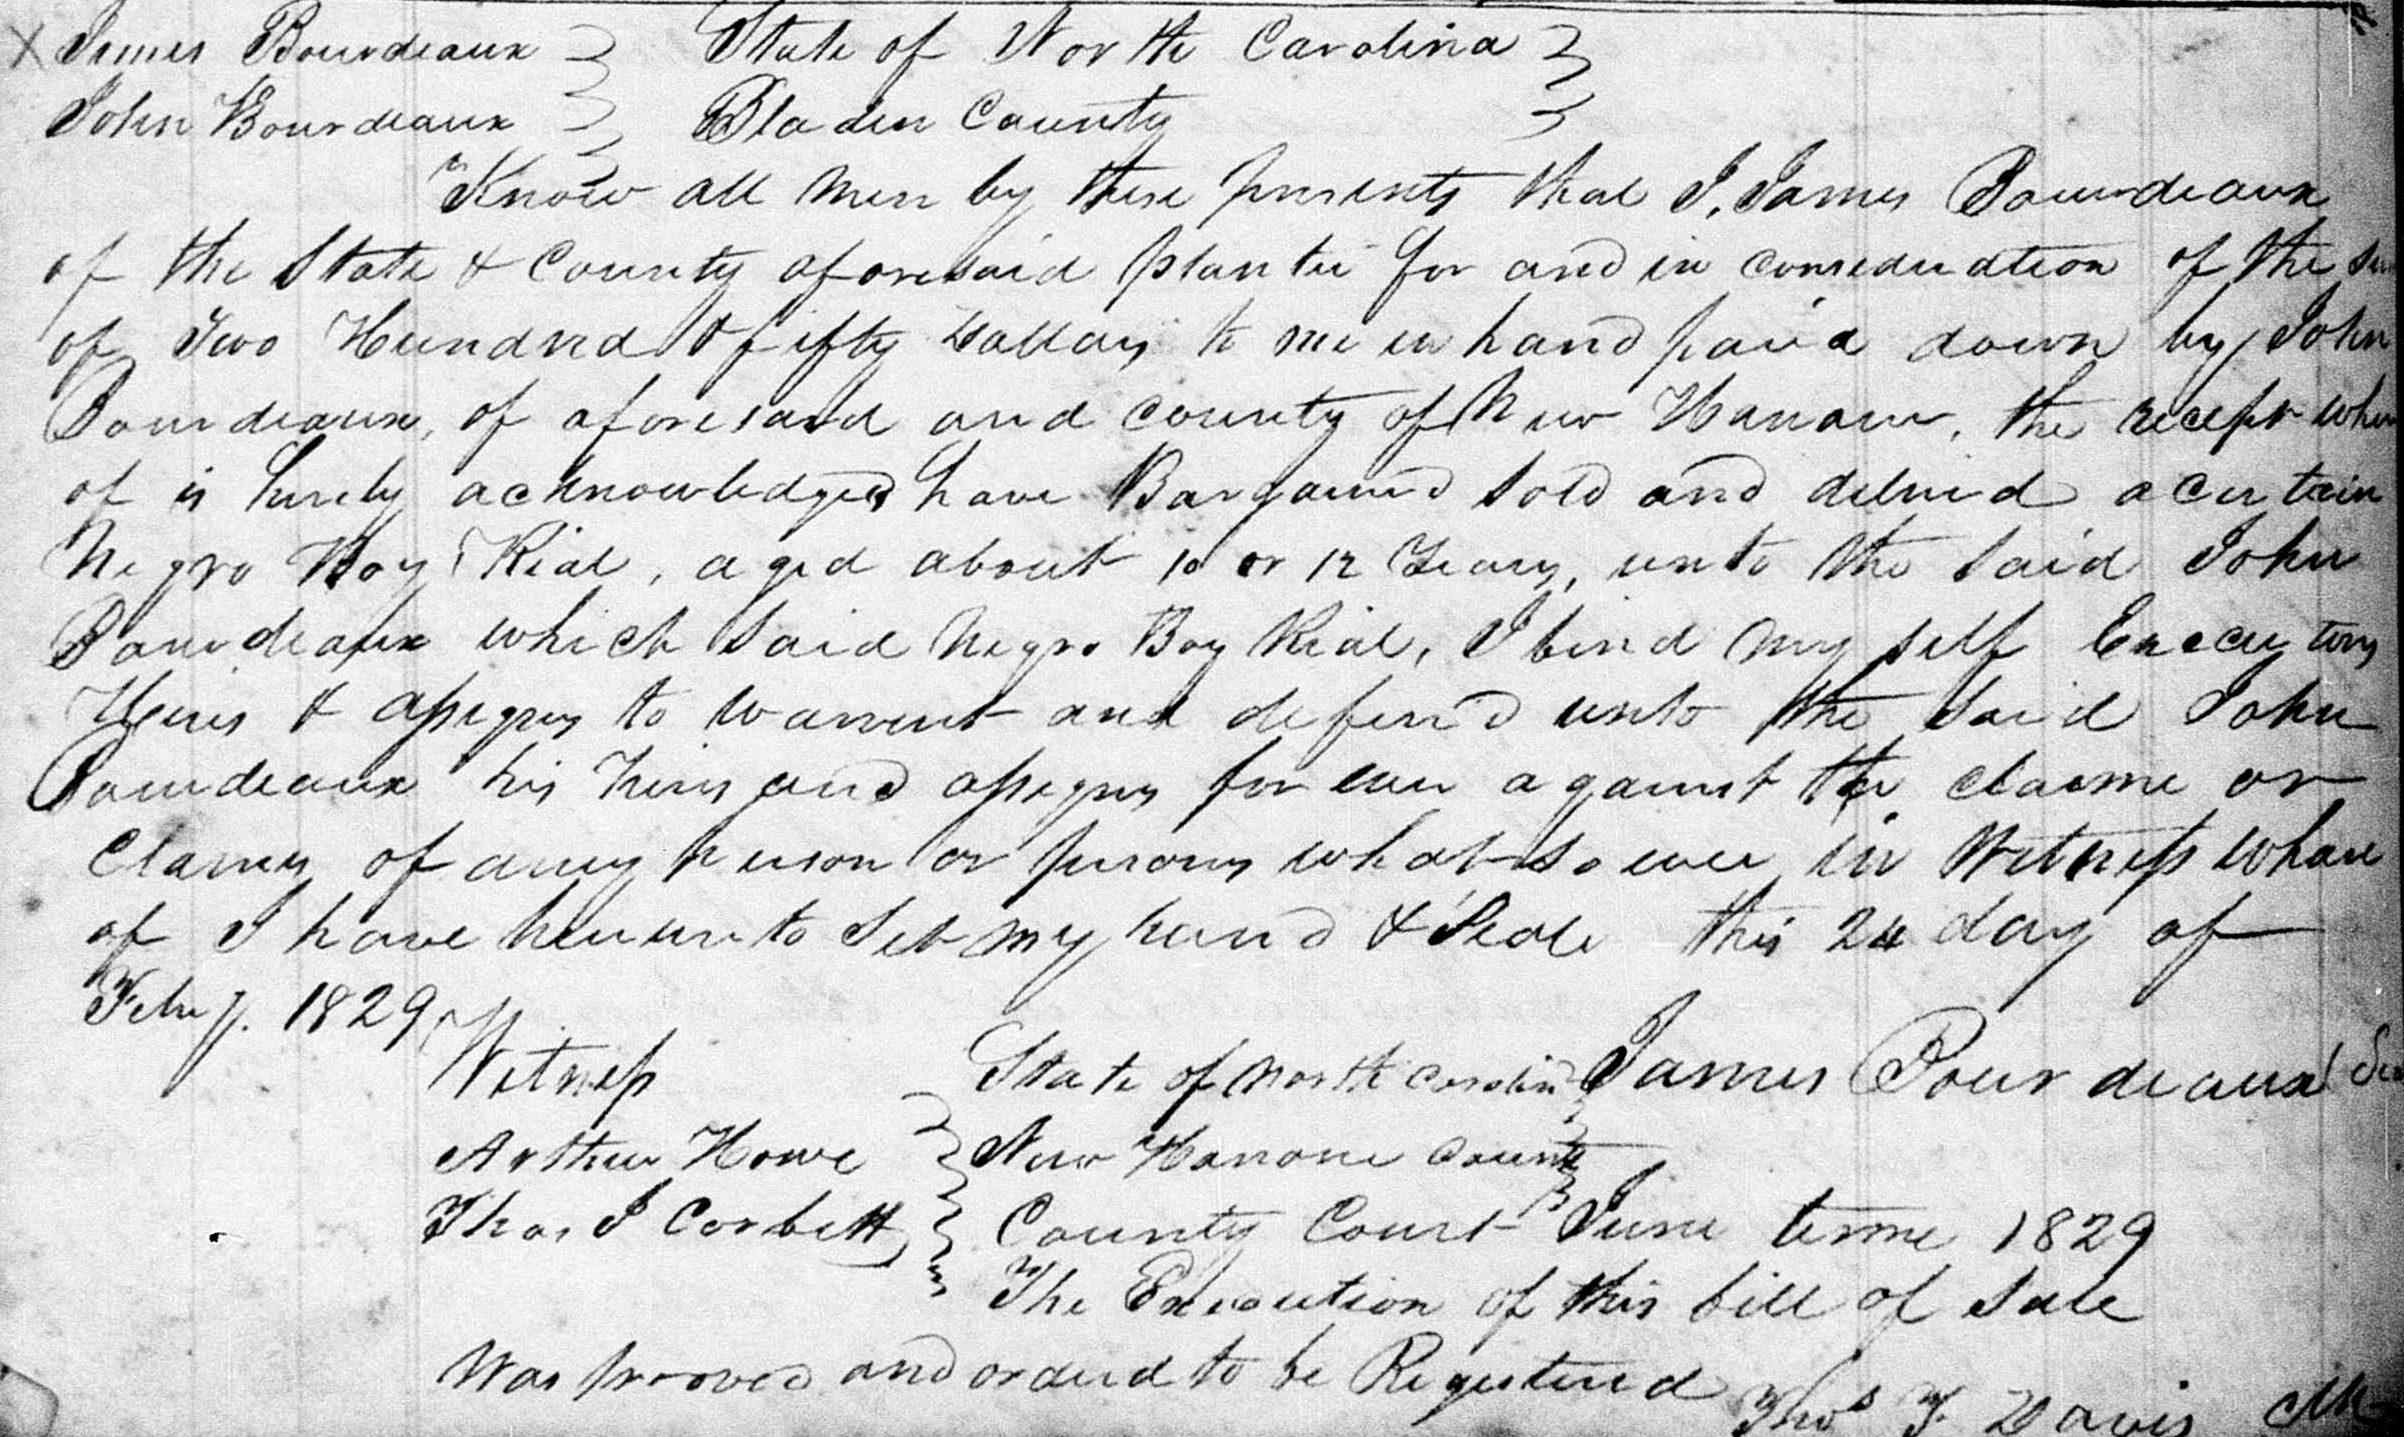 X James Bourdeaux State of North Carolina
John Bourdeaux Bladen County
Know all men by these presents that I, James Bourdeaux
of the State & County aforesaid planter for and in consideration of the
of Two Hundred & fifty Dollars to me in hand paid down by John
Bourdeaux, of aforesaid and county of New Hanover, the recept
of is hereby acknowledged have Bargained Sold and delived a certain
Negro Boy Rial, aged about 10 or 12 Years, unto the Said John
Bourdeaux which Said Negro Boy Rial, I bind my self Executors
Heirs & assigns to warrent and defend unto the Said John
Bourdeaux his heirs and assigns for ever against the claime or
Claimes of any person or persons whatsoever in Witness whare
of I have hereunto Set my hand & Seale this 24 day of
Feby. 1829
Witness State of North Carolin James Bourdeaux
Arthur Howe New Hanover County
Thos J Corbett County Court June terme 1829
The Execution of this bill of Sale
Was prooved and orderd to be Registered Thos F. Davis Clk